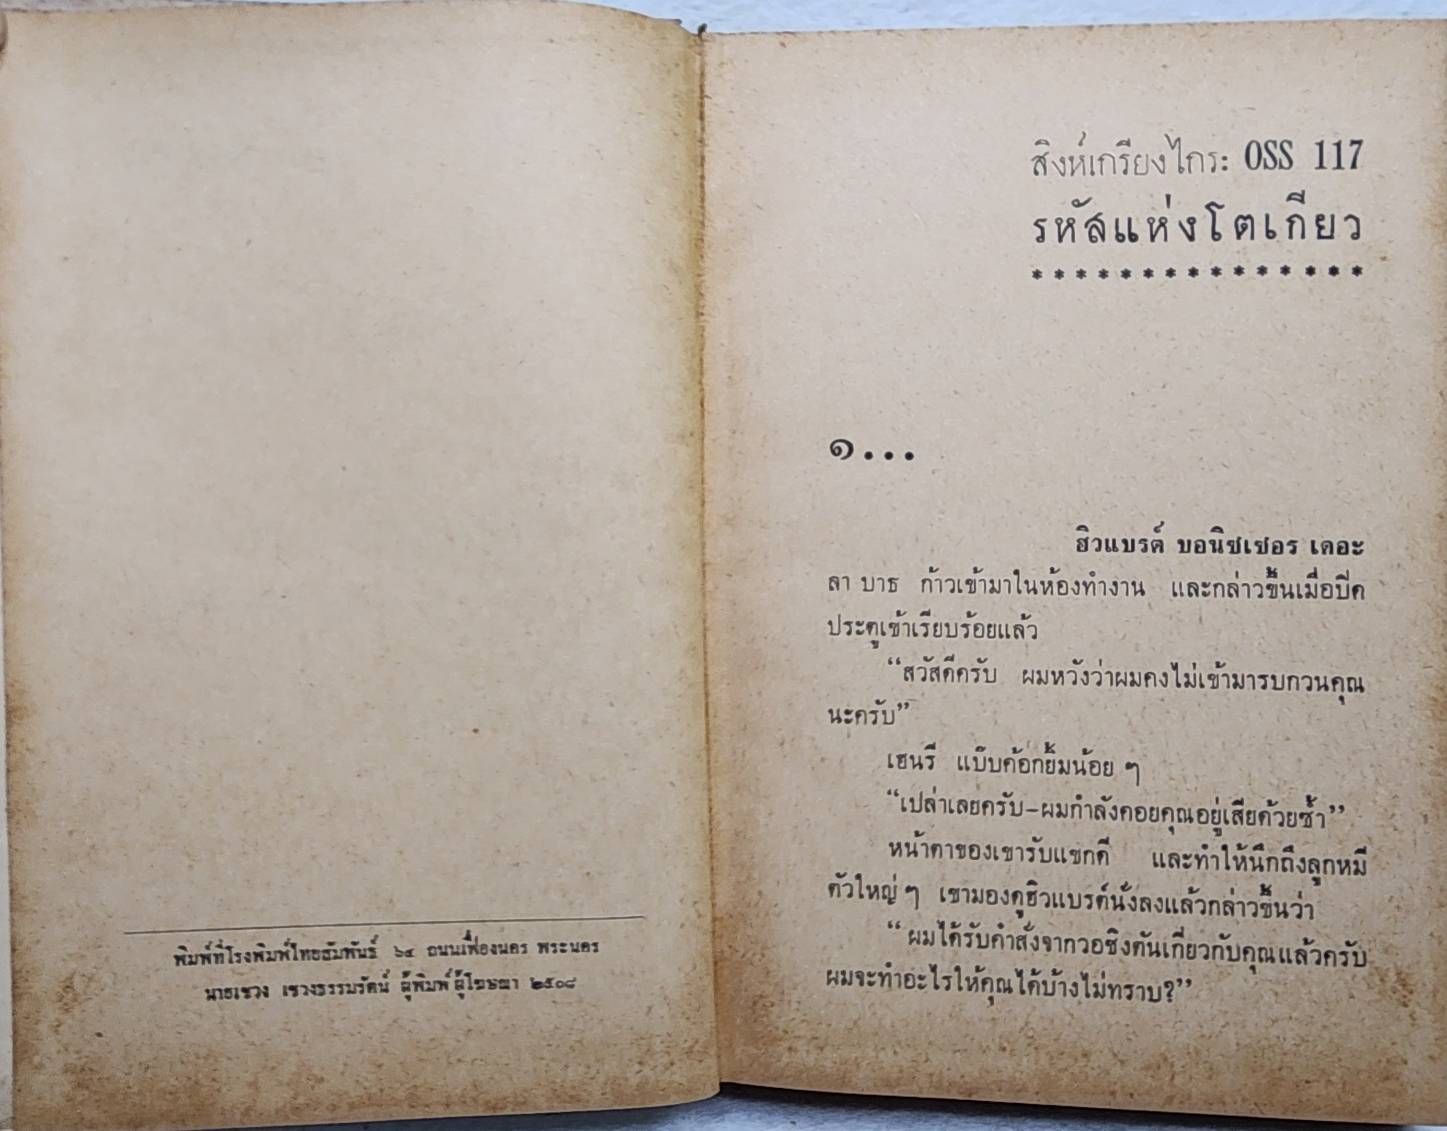 พิมพ์ที่โรงพิมพ์ไทยสัมพันธ์ ๖๔ ถนนเฟื่องนคร พระนคร
นายเชวง เชวงธรรมรัตน์ ผู้พิมพ์ผู้โฆษณา ๒๕๐๘
สิงห์เกรียงไกร: OSS 117
รหัสแห่งโตเกียว
***************
๑...
ฮิวแบรต์ บอนิซเซอร เดอะ
ลา บาธ ก้าวเข้ามาในห้องทำงาน และกล่าวขึ้นเมื่อปิด
ประตูเข้าเรียบร้อยแล้ว
“สวัสดีครับ ผมหวังว่าผมคงไม่เข้ามารบกวนคุณ
นะครับ”
เฮนรี แบ๊บค้อกยิ้มน้อย ๆ
“เปล่าเลยครับ–ผมกำลังคอยคุณอยู่เสียด้วยซ้ำ”
หน้าตาของเขารับแขกดี และทำให้นึกถึงลูกหมี
ตัวใหญ่ ๆ เขามองดูฮิวแบรต์นั่งลงแล้วกล่าวขึ้นว่า
“ผมได้รับคำสั่งจากวอชิงตันเกี่ยวกับคุณแล้วครับ
ผมจะทำอะไรให้คุณได้บ้างไม่ทราบ?”